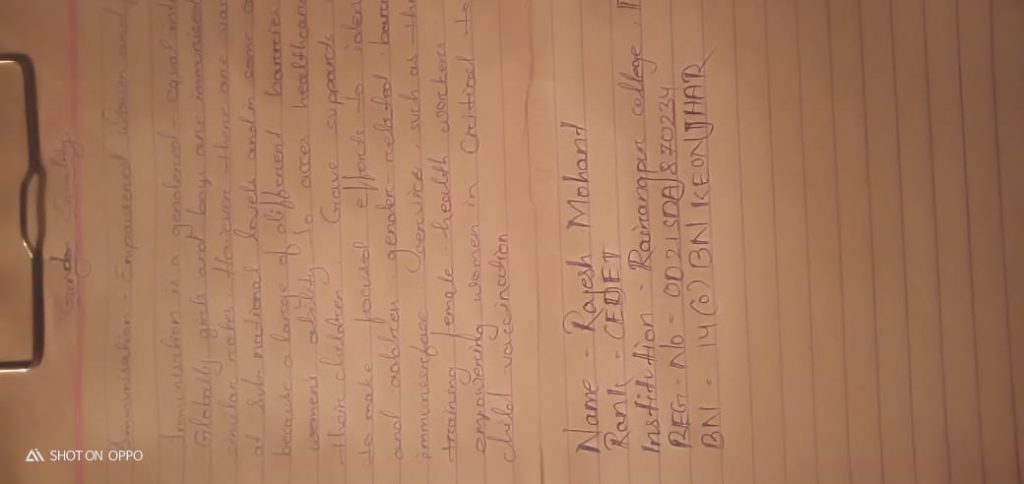 Gender Equality
Immunisation - Empowered Women and
Immunisation is a gendered - equal inte
Globally girls and boys are immunised
similar rates. However there are var
at sub national levels and in some co
because a large of different barrier
women ability to access healthcare
their children. Gave supports
to make focused efforts to iden
and address gender-related barri
immunisation service, such as the
training female health workers
empowering women in critical to
child vaccination
Name - Rajesh Mohand
Rank - CEDET
Institition - Rairangpur college,
REG. No - OD21SDA
BN - 14(O) BN KEONJHAR
SHOT ON OPPO